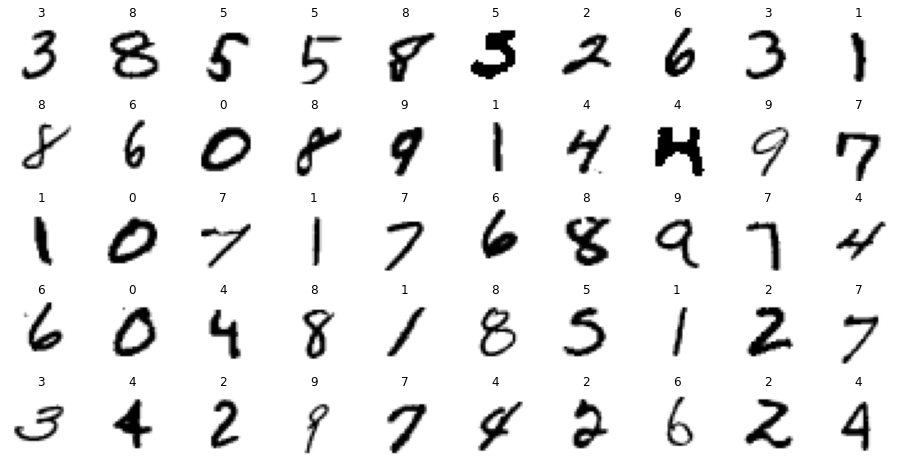 3 8 5 5 8 5 2 6 3 1
3 8 5 5 8 5 2 6 3 1
8 6 0 8 9 1 4 4 9 7
8 6 0 8 9 1 4 4 9 7
1 0 7 1 7 6 8 9 7 4
1 0 7 1 7 6 8 9 7 4
6 0 4 8 1 8 5 1 2 7
6 0 4 8 1 8 5 1 2 7
3 4 2 9 7 4 2 6 2 4
3 4 2 9 7 4 2 6 2 4